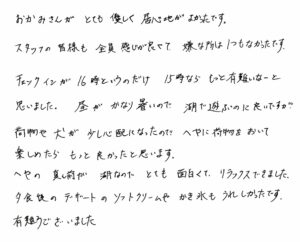 おかみさんが とても 優しく 居心地が よかったです。
スタッフの 皆様も 全員 感じが 良くて 嫌な所は 1つもなかったです。
チェックインが 16時というのだけ 15時なら もっと有難いなーと
思いました。 昼が かなり暑いので 湖で遊ぶのに良いですが
荷物や 犬が 少し心配になったので へやに荷物を おいて
楽しめたら もっと 良かったと思います。
へやの 真ん前が 湖なので とても 面白くて、リラックスできました。
夕食後の デザートの ソフトクリームや かき氷も うれしかったです。
有難うございました